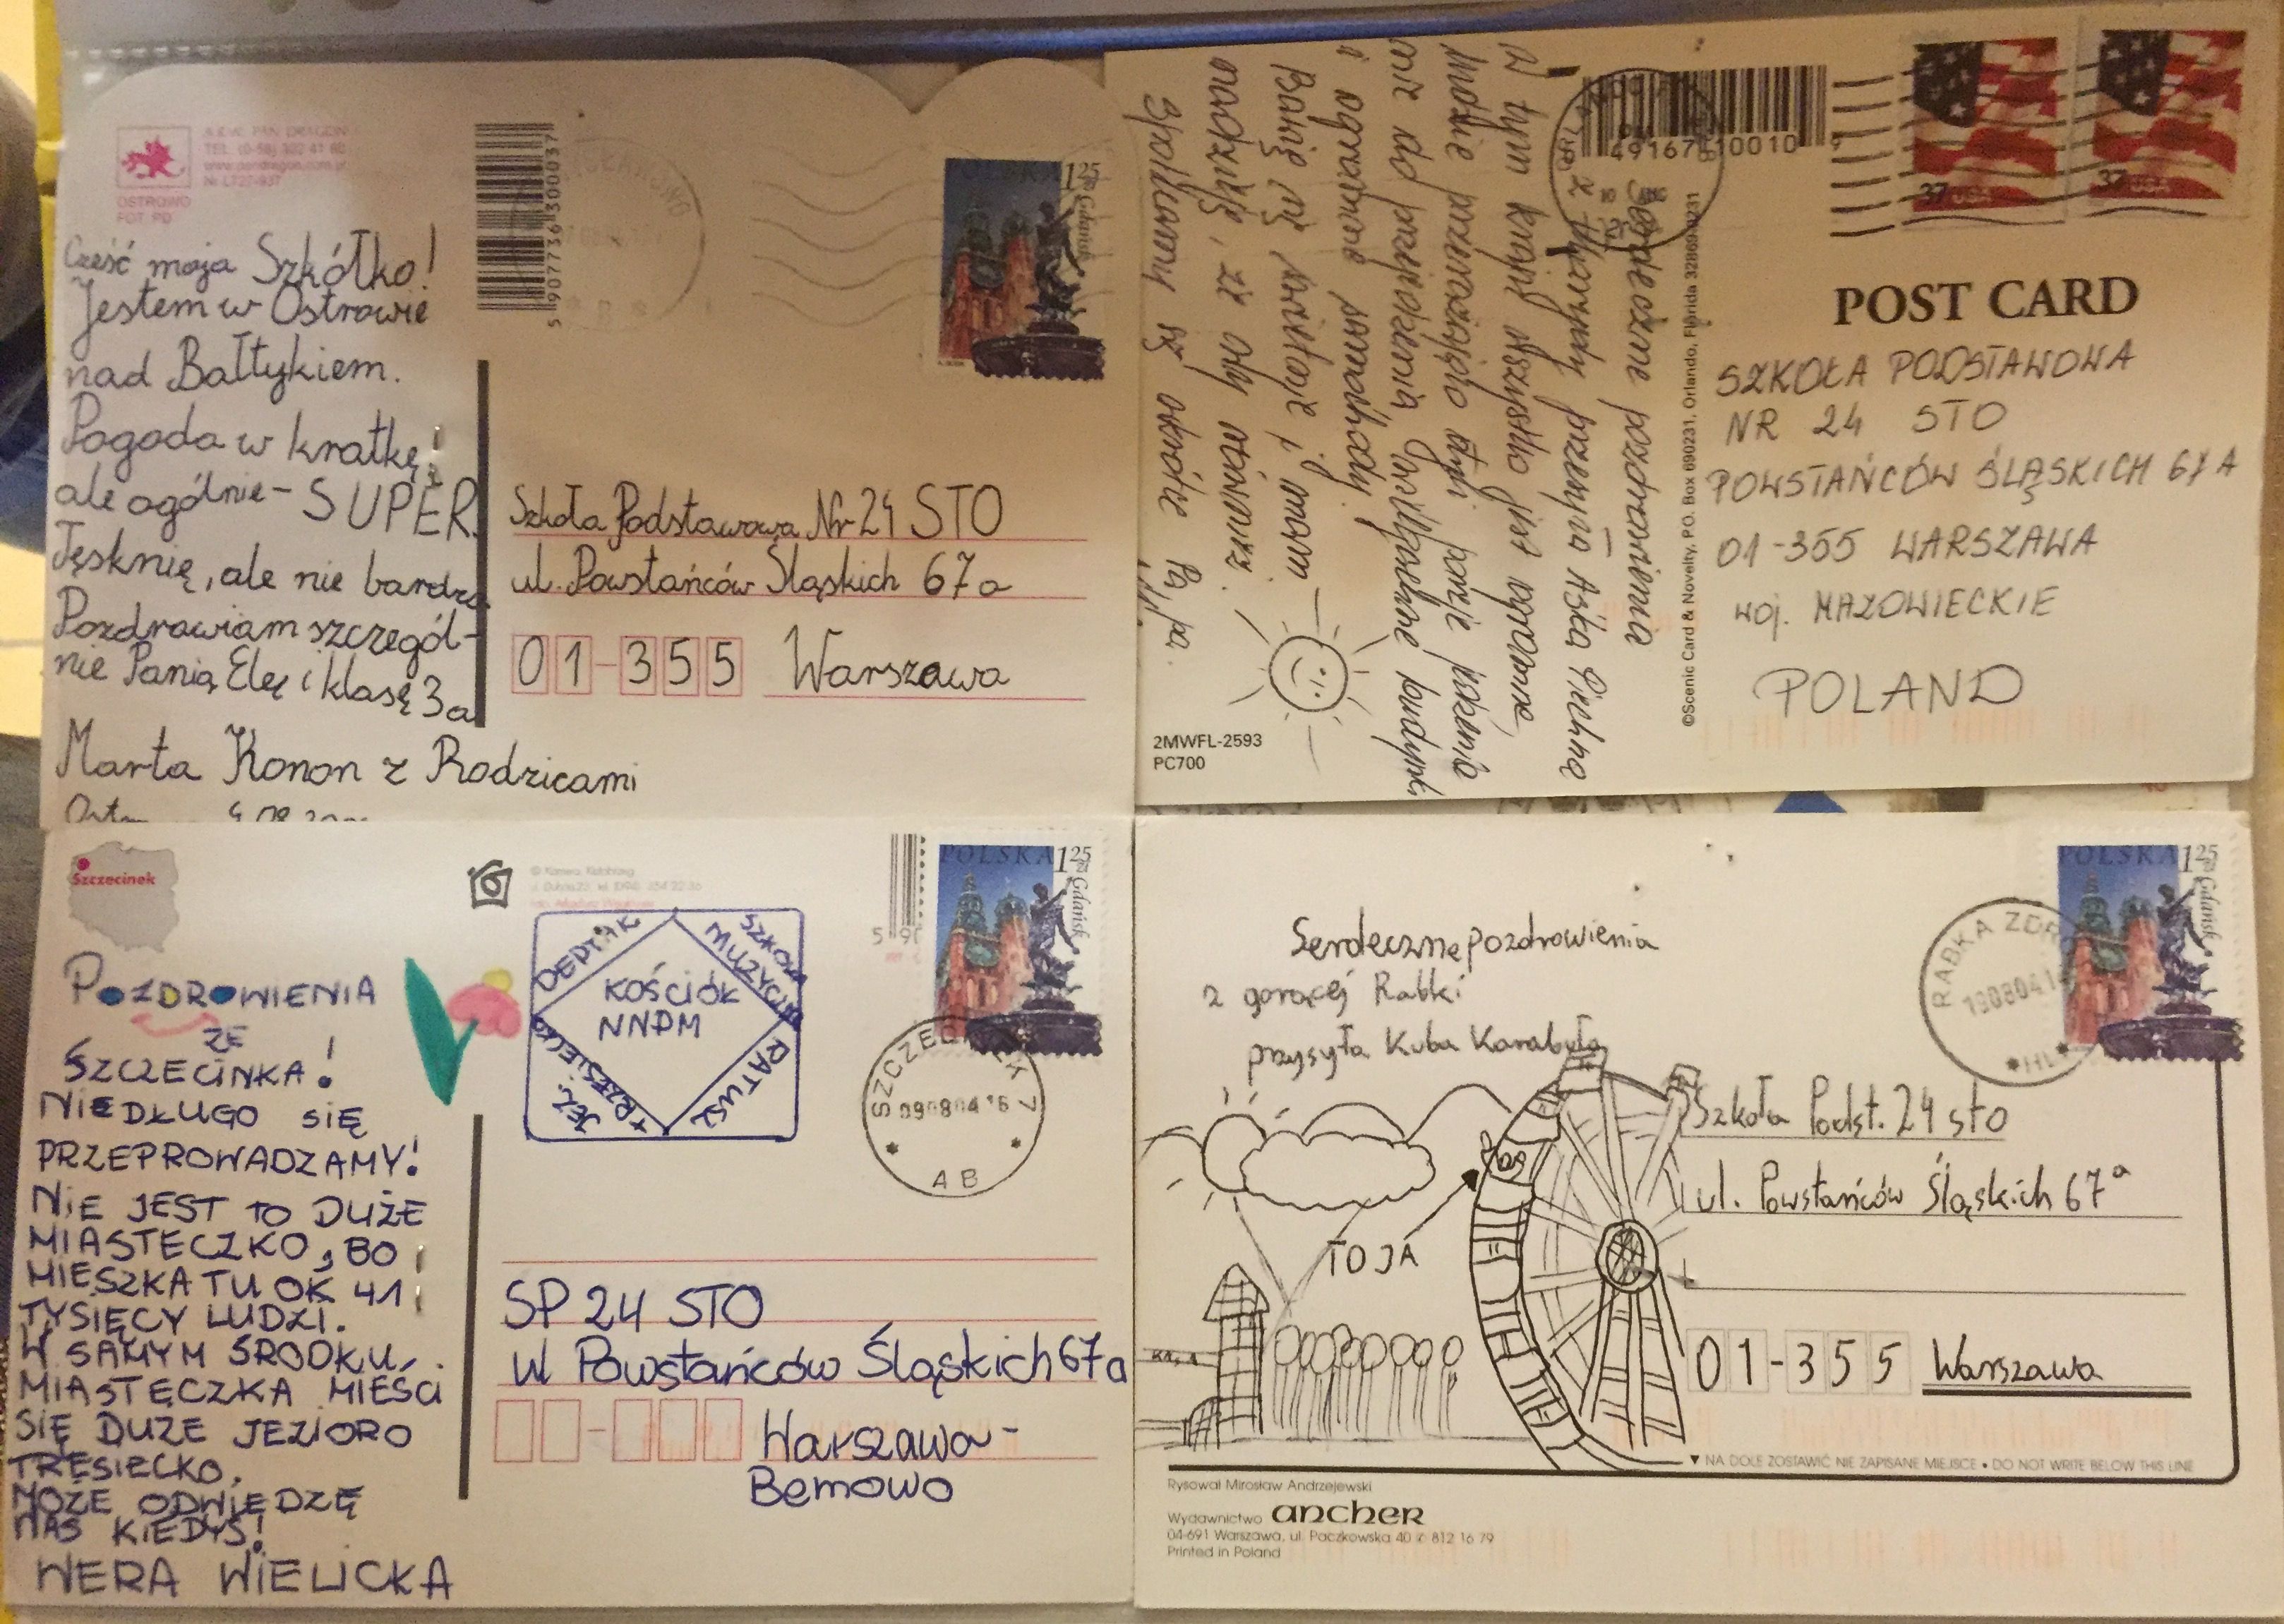 OSTROWO
FOT. PD
Cześć moja Szkółko!
Jestem w Ostrowie
nad Bałtykiem.
Pogoda w kratkę!
ale ogólnie - SUPER.
Tęsknię, ale nie bardzo
Pozdrawiam szczegól-
nie Panią Elę i klasę 3a
Marta Konon z Rodzicami
5 907736 300037
POLSKA 1,25
Gdańsk
Szkoła Podstawowa Nr 24 STO
ul. Powstańców Śląskich 67a
01-355 Warszawa
Serdeczne pozdrowienia
z przesyła Aśka Piechna
W tym kraju wszystko jest ogromne
i ogromne samochody.
Bawię się świetnie i mam
nadzieję, że wy również.
Spotkamy się wkrótce Pa, pa.
49167 10010 9
37 USA
37 USA
POST CARD
SZKOŁA PODSTAWOWA
NR 24 STO
POWSTAŃCÓW ŚLĄSKICH 67A
01-355 WARSZAWA
woj. MAZOWIECKIE
POLAND
©Scenic Card & Novelty, P.O. Box 690231, Orlando, Florida 32869-0231
2MWFL-2593
PC700
Szczecinek
POZDROWIENIA
ZE
SZCZECINKA!
NIEDŁUGO SIĘ
PRZEPROWADZAMY!
NIE JEST TO DUŻE
MIASTECZKO, BO
MIESZKA TU OK 41
TYSIĘCY LUDZI.
W SAMYM ŚRODKU
MIASTECZKA MIEŚCI
SIĘ DUŻE JEZIORO
TRESIECKO.
MOŻE ODWIEDZĘ
NAS KIEDYŚ!
WERA WIELICKA
DEPTAK
SZKOŁA
KOŚCIÓŁ
NNPM
JEZ.
RATUSZ
POLSKA 1,25
Gdańsk
SZCZECINEK 7
090804 16
AB
SP 24 STO
ul Powstańców Śląskich 67a
Warszawa-
Bemowo
Serdeczne pozdrowienia
z gorącej Rabki
przysyła Kuba Karabuła
TO JA
POLSKA 1,25
Gdańsk
RABKA ZDRÓJ
Szkoła Podst. 24 sto
ul. Powstańców Śląskich 67a
01-355 Warszawa
▼ NA DOLE ZOSTAWIĆ NIE ZAPISANE MIEJSCE • DO NOT WRITE BELOW THIS LINE
Rysował Mirosław Andrzejewski
Wydawnictwo ancher
04-691 Warszawa, ul. Paczkowska 40 ✆ 812 16 79
Printed in Poland